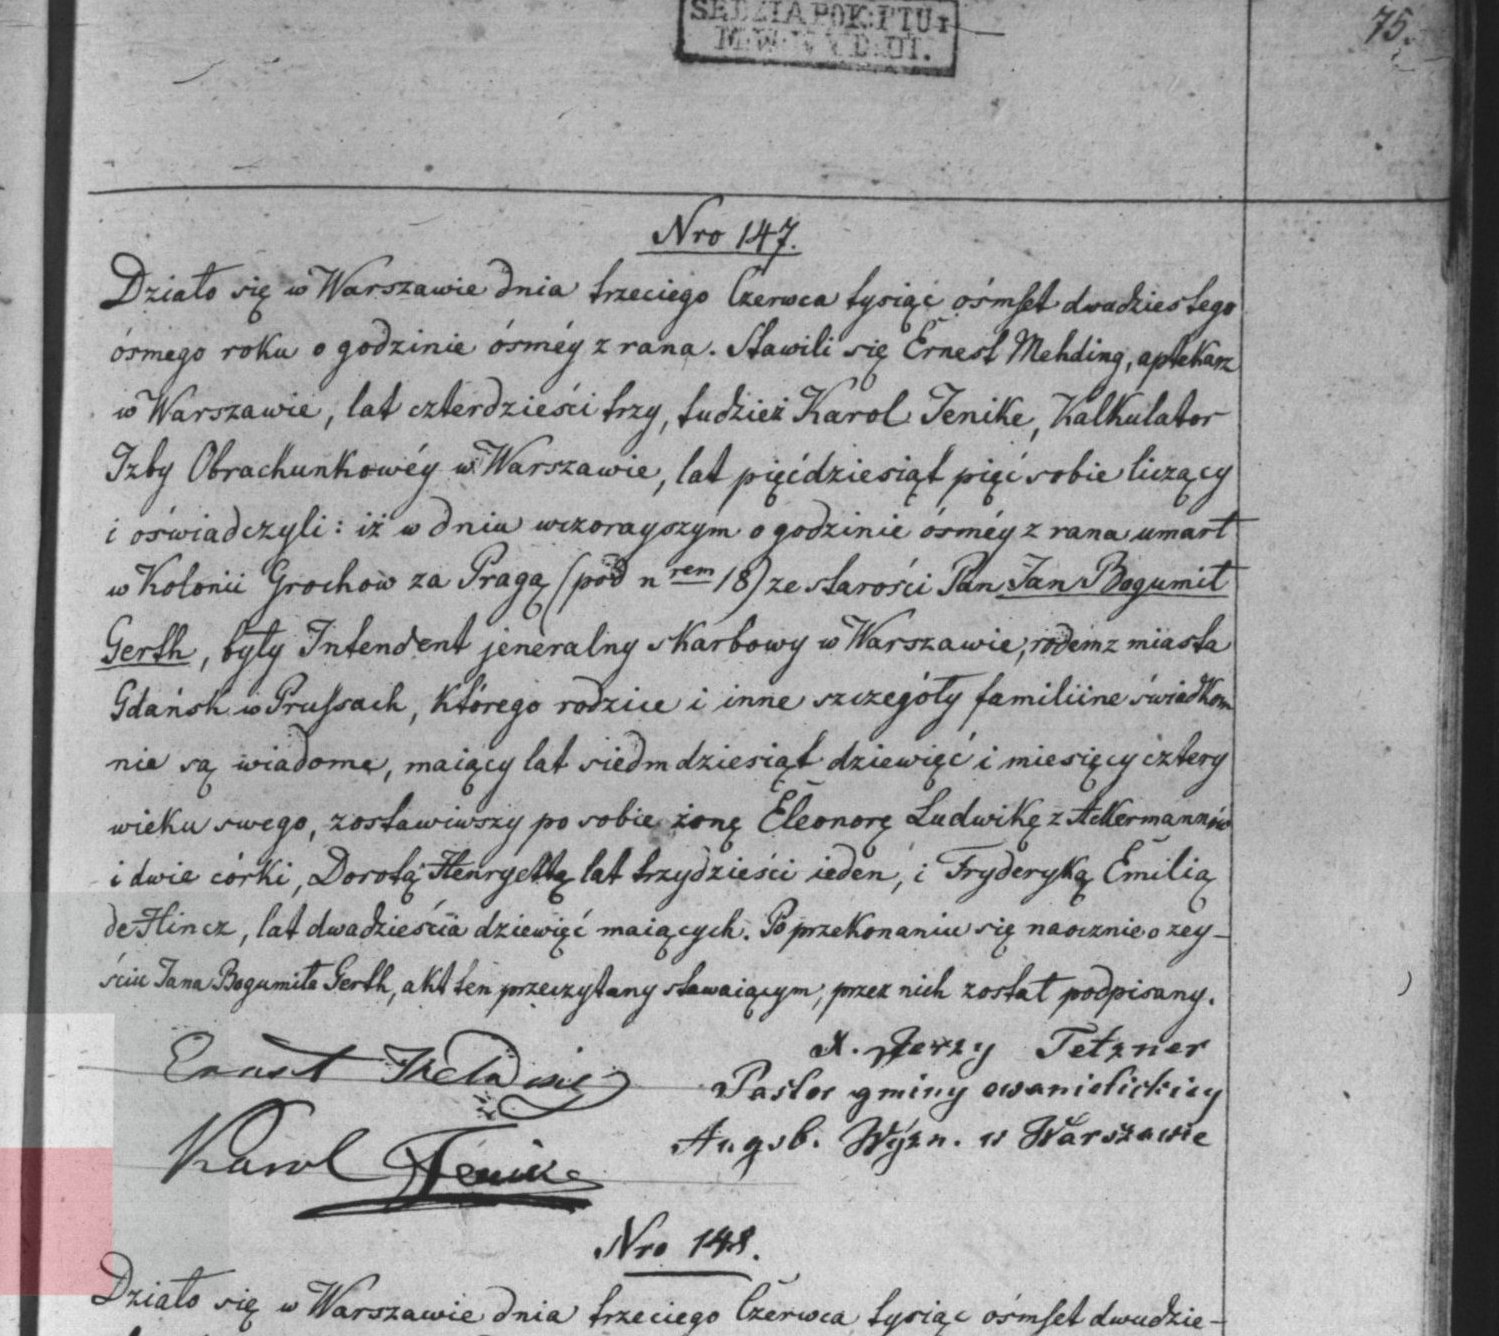 SĘDZIA POK: PTU i
75.
Nro 147.
Działo się w Warszawie dnia trzeciego Czerwca tysiąć ośmset dwudziestego
ósmego roku o godzinie ósméy z rana. Stawili się Ernest Mehding, aptekarz
w Warszawie, lat czterdzieści trzy, tudzież Karol Jenike, Kalkulator
Izby Obrachunkowéy w Warszawie, lat pięćdziesiąt pięć sobie liczący
i oświadczyli: iż w dniu wczorayszym o godzinie ósméy z rana umarł
w Kolonii Grochow za Pragą (pod nrem 18) ze starości Pan Jan Bogumił
Gerth, były Intendent jeneralny skarbowy w Warszawie, rodem z miasta
Gdańsk w Prussach, którego rodzice i inne szczegóły familiine świadkom
nie są wiadome, maiący lat siedmdziesiąt dziewięć i miesięcy cztery
wieku swego, zostawiwszy po sobie żonę Eleonorę Ludwikę z Ackermannów
i dwie córki, Dorotą Henryettą lat trzydzieści ieden, i Fryderyką Emilią
de Hincz, lat dwadzieścia dziewięć maiących. Po przekonaniu się naocznie o zey-
ściu Jana Bogumiła Gerth, akt ten przeczytany stawaiącym, przez nich został podpisany.
X. Jerzy Tetzner
Pastor gminy ewanielickiey
Augsb. Wyzn. w Warszawie
Ernst Mehding
Karol Jenike
Nro 148.
Działo się w Warszawie dnia trzeciego Czerwca tysiąc ośmset dwudzie-